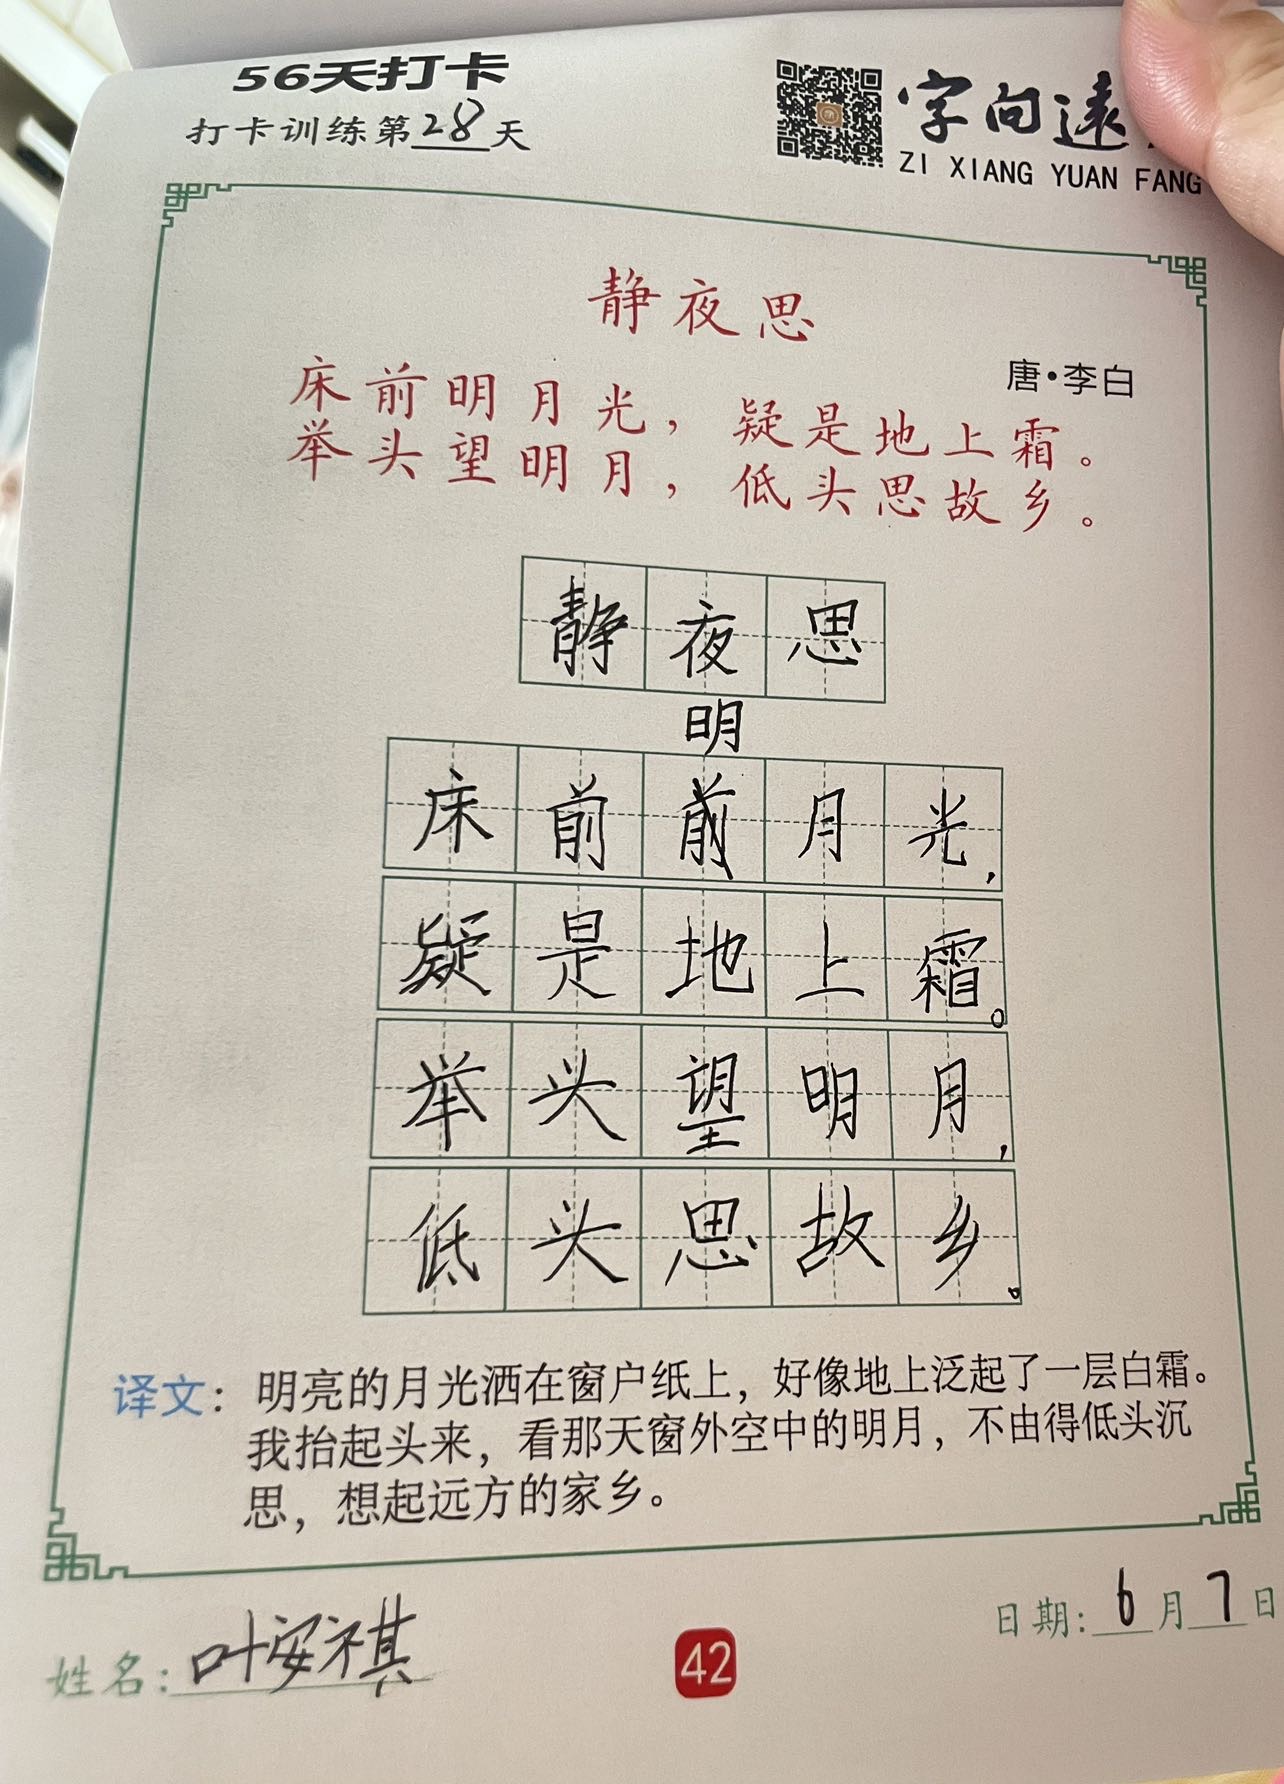 56天打卡
打卡训练第28天
字向远
ZI XIANG YUAN FANG
静夜思
唐·李白
床前明月光，疑是地上霜。
举头望明月，低头思故乡。
静夜思
明
床前前月光，
疑是地上霜。
举头望明月，
低头思故乡。
译文：明亮的月光洒在窗户纸上，好像地上泛起了一层白霜。
我抬起头来，看那天窗外空中的明月，不由得低头沉
思，想起远方的家乡。
姓名：叶安祺
42
日期：6月7日